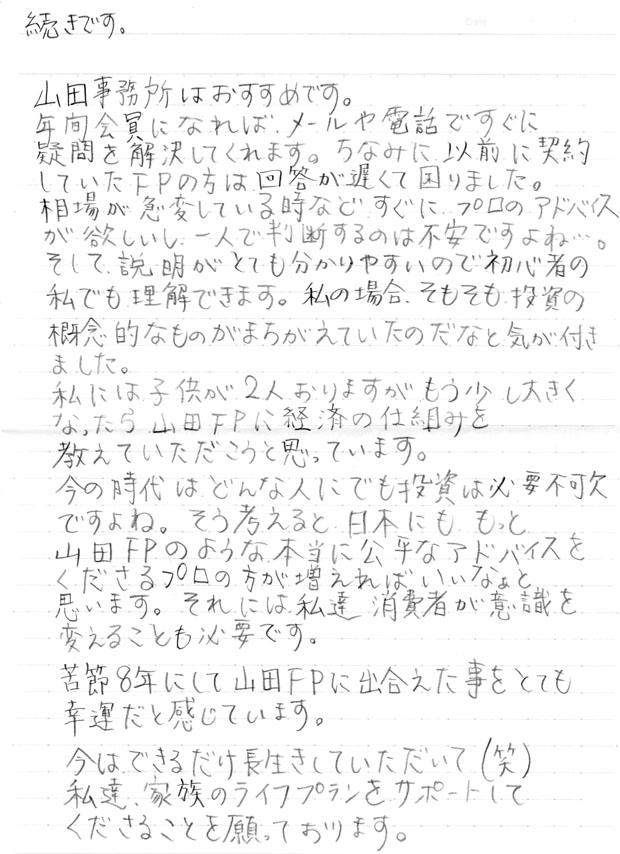 続きです。
山田事務所はおすすめです。
年間会員になれば、メールや電話ですぐに
疑問を解決してくれます。ちなみに、以前に契約
していたFPの方は、回答が遅くて困りました。
相場が急変している時など すぐに プロのアドバイス
が欲しいし、一人で判断するのは不安ですよね…。
そして、説明がとても分かりやすいので初心者の
私でも理解できます。私の場合、そもそも、投資の
概念的なものがまちがえていたのだなと気が付き
ました。
私には子供が2人おりますが もう少し大きく
なったら 山田FPに経済の仕組みを
教えていただこうと思っています。
今の時代はどんな人にでも投資は必要不可欠
ですよね。そう考えると、日本にも、もっと
山田FPのような、本当に公平なアドバイスを
くださるプロの方が増えればいいなぁと
思います。それには、私達、消費者が意識を
変えることも必要です。
苦節8年にして山田FPに出合えた事をとても
幸運だと感じています。
今はできるだけ長生きしていただいて(笑)
私達、家族のライフプランをサポートして
くださることを願っております。